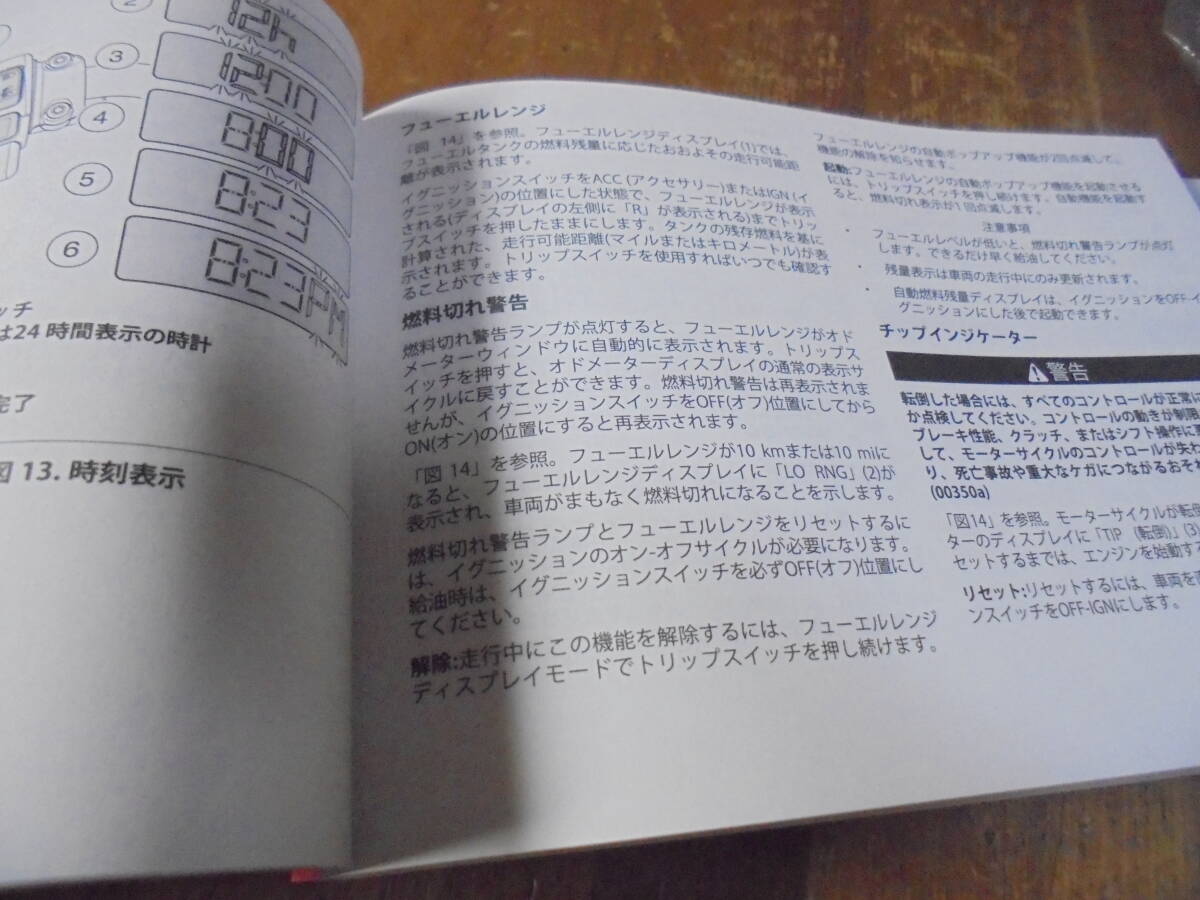 2
12h
3
1200
4
8:00
5
8:23
6
8:23PM
ッチ
は24 時間表示の時計
完了
図 13. 時刻表示
フューエルレンジ
「図 14」を参照。フューエルレンジディスプレイ(1)では、
フューエルタンクの燃料残量に応じたおおよその走行可能距
離が表示されます。
イグニッションスイッチをACC (アクセサリー)またはIGN (イ
グニッション)の位置にした状態で、フューエルレンジが表示
される(ディスプレイの左側に「R」が表示される)までトリッ
プスイッチを押したままにします。タンクの残存燃料を基に
計算された、走行可能距離(マイルまたはキロメートル)が表
示されます。トリップスイッチを使用すればいつでも確認す
ることができます。
燃料切れ警告
燃料切れ警告ランプが点灯すると、フューエルレンジがオド
メーターウィンドウに自動的に表示されます。トリップス
イッチを押すと、オドメーターディスプレイの通常の表示サ
イクルに戻すことができます。燃料切れ警告は再表示されま
せんが、イグニッションスイッチをOFF(オフ)位置にしてから
ON(オン)の位置にすると再表示されます。
「図 14」を参照。フューエルレンジが10 kmまたは10 miに
なると、フューエルレンジディスプレイに「LO RNG」(2)が
表示され、車両がまもなく燃料切れになることを示します。
燃料切れ警告ランプとフューエルレンジをリセットするに
は、イグニッションのオン-オフサイクルが必要になります。
給油時は、イグニッションスイッチを必ずOFF(オフ)位置にし
てください。
解除:走行中にこの機能を解除するには、フューエルレンジ
ディスプレイモードでトリップスイッチを押し続けます。
フューエルレンジの自動ポップアップ機能が2回点滅して、
機能の解除を知らせます。
起動:フューエルレンジの自動ポップアップ機能を起動させる
には、トリップスイッチを押し続けます。自動機能を起動す
ると、燃料切れ表示が1回点滅します。
注意事項
• フューエルレベルが低いと、燃料切れ警告ランプが点灯
します。できるだけ早く給油してください。
• 残量表示は車両の走行中にのみ更新されます。
• 自動燃料残量ディスプレイは、イグニッションをOFF-イ
グニッションにした後で起動できます。
チップインジケーター
⚠警告
転倒した場合には、すべてのコントロールが正常に
か点検してください。コントロールの動きが制限
ブレーキ性能、クラッチ、またはシフト操作に
して、モーターサイクルのコントロールが失わ
り、死亡事故や重大なケガにつながるおそ
(00350a)
「図14」を参照。モーターサイクルが転倒
ターのディスプレイに「TIP (転倒)」(3)
セットするまでは、エンジンを始動す
リセット:リセットするには、車両を
ンスイッチをOFF-IGNにします。